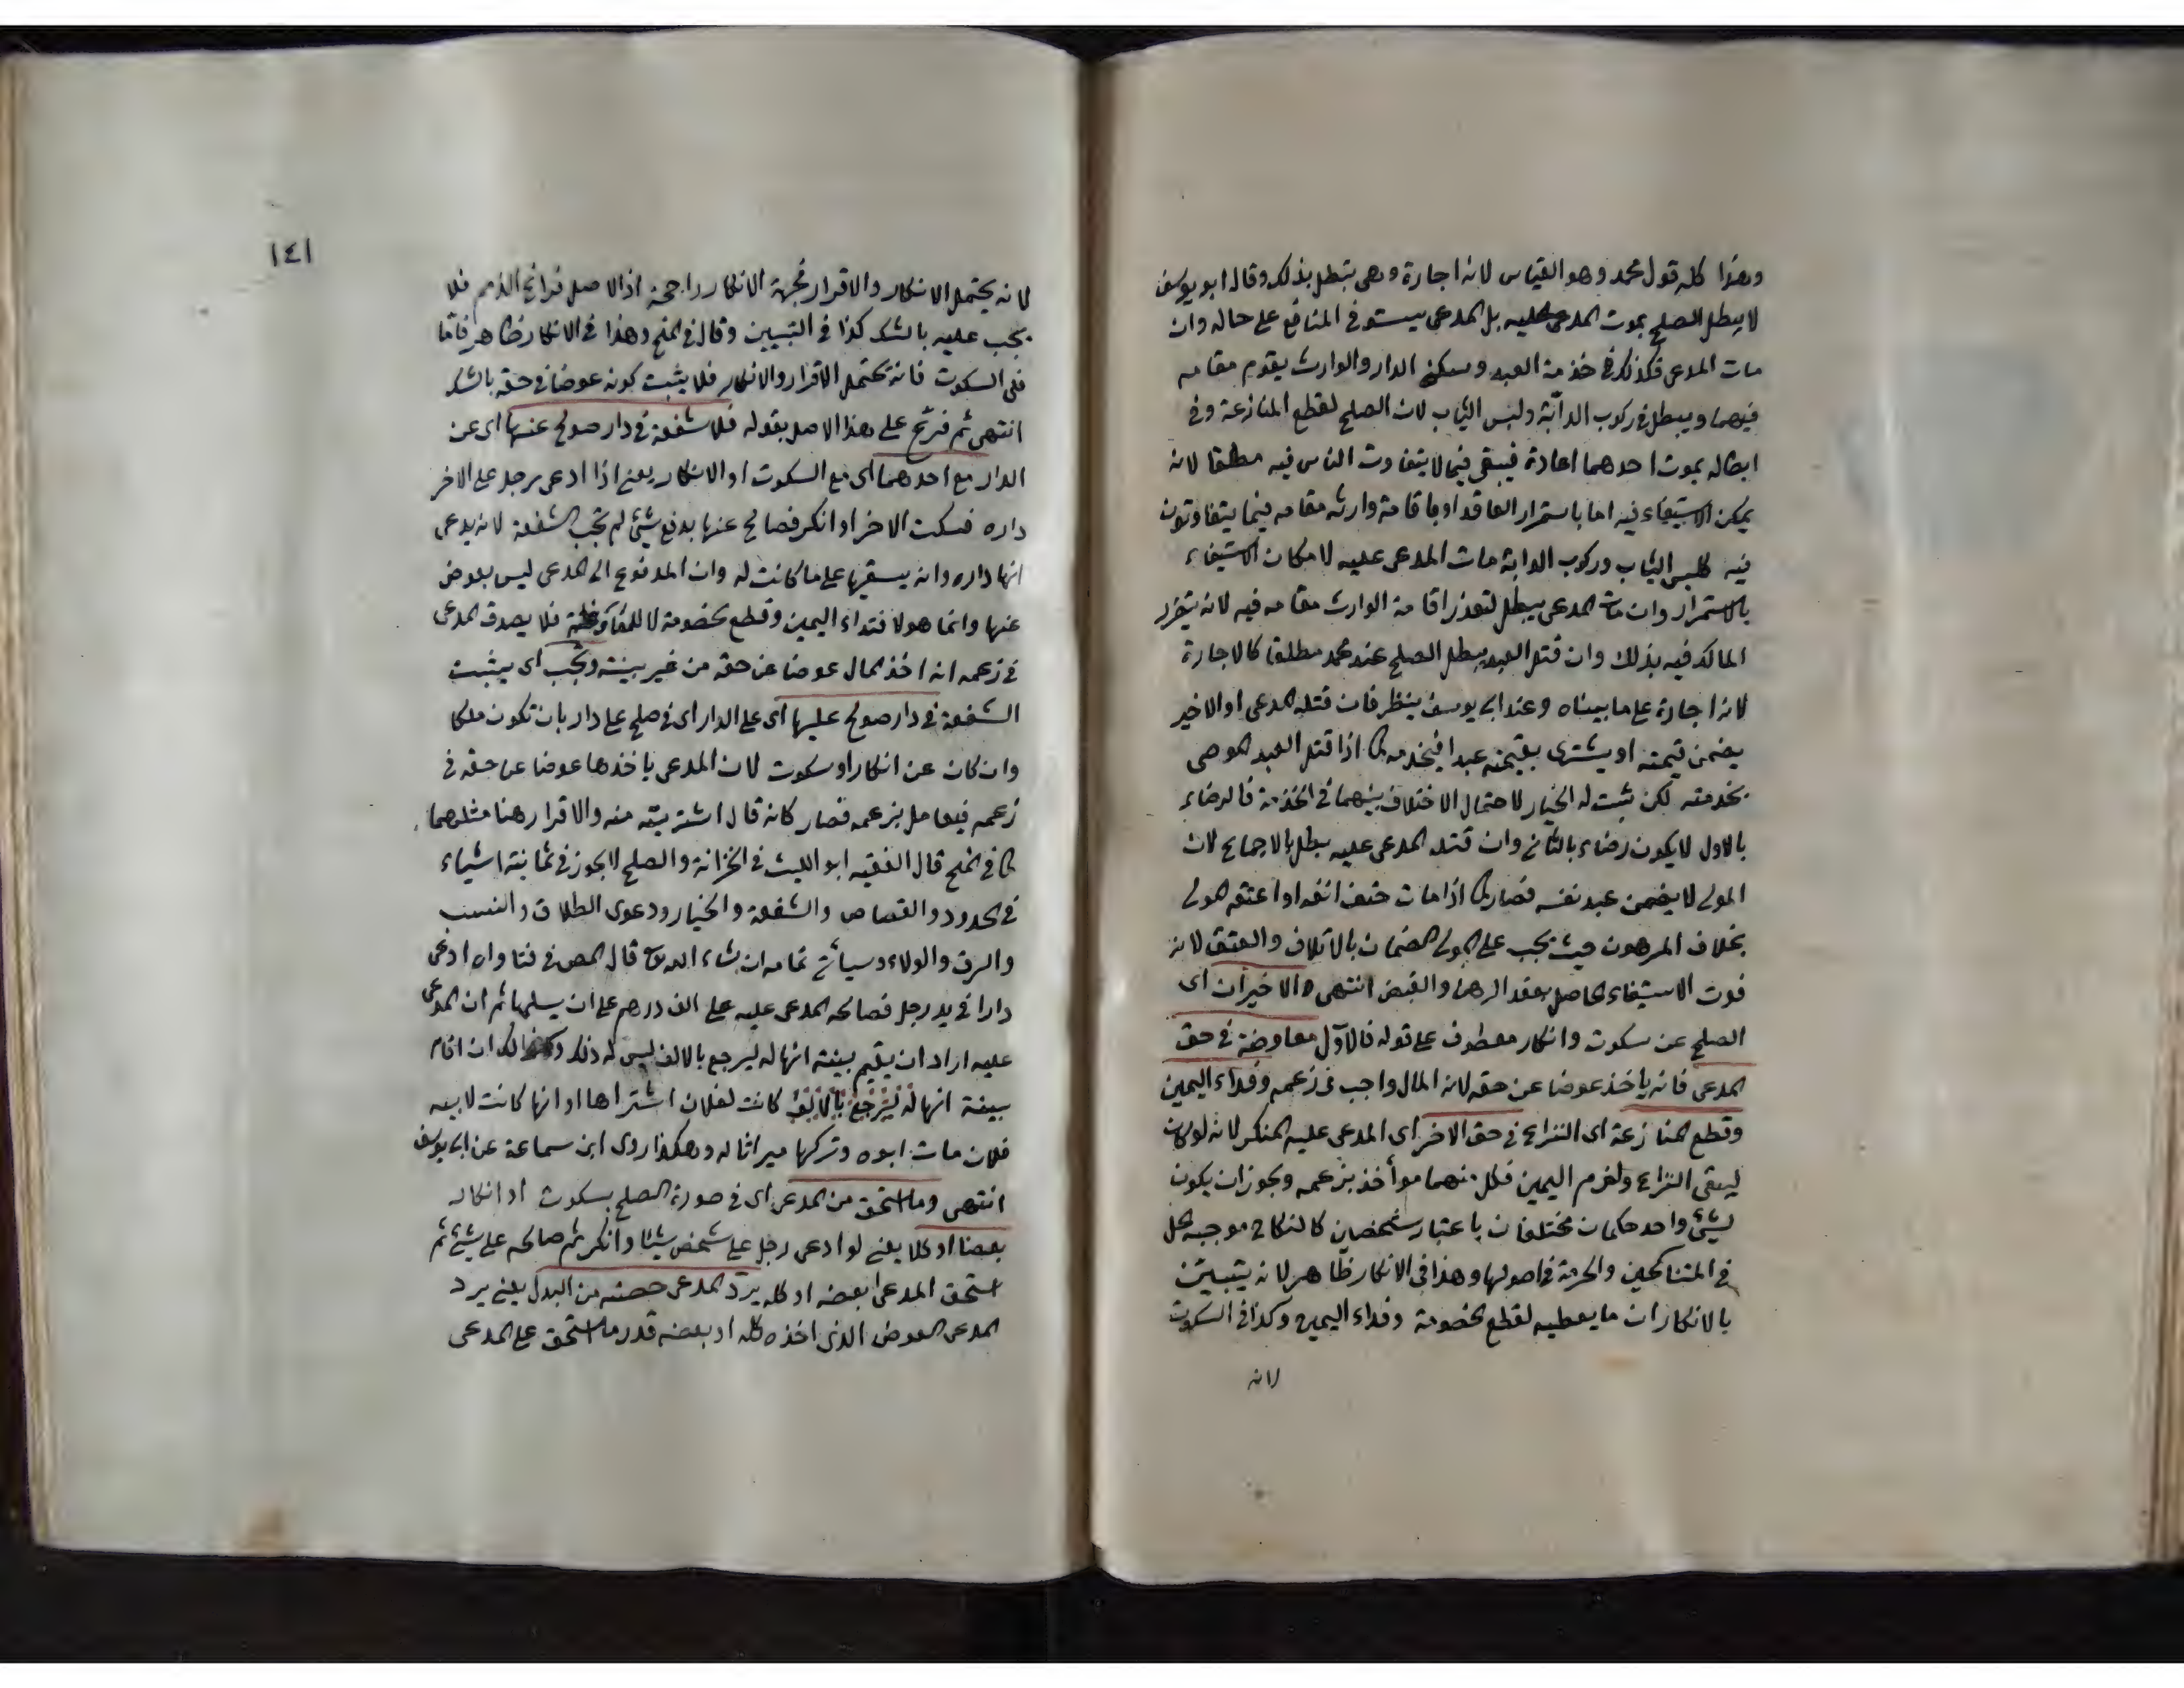 وهذا كله قول محمد وهو القياس لانه اجارة وهي تبطل بذلك وقال ابو يوسف
لا يبطل الصلح بموت المدعى عليه بل المدعي يستوفي المنافع على حاله وان
مات المدعي فكذلك في خدمة العبد وسكنى الدار والوارث يقوم مقامه
فيهما ويبطل في ركوب الدابة ولبس الثياب لان الصلح لقطع المنازعة وفي
ابطاله بموت احدهما اعادة فيبقى فيما لا يتفاوت الناس فيه مطلقا لانه
يمكن الاستيفاء فيه اما باستمرار العاقد او باقامة وارثه مقامه فيما يتفاوتون
فيه كلبس الثياب وركوب الدابة مات المدعى عليه لامكان الاستيفاء
بالاستمرار وان مات المدعي يبطل لتعذر اقامة الوارث مقامه فيه لانه يتضرر
المالك فيه بذلك وان قتل العبد يبطل الصلح عند محمد مطلقا كالاجارة
لانه اجارة على ما بيناه وعند ابي يوسف ينظر فان قتله المدعي او الاخير
يضمن قيمته او يشترى بقيمته عبدا فيخدمه كما اذا قتل العبد الموصى
بخدمته لكن يثبت له الخيار لاحتمال الاختلاف بينهما في الخدمة فالرضاء
بالاول لا يكون رضاء بالثاني وان قتله المدعى عليه يبطل بالاجماع لان
المولى لا يضمن عبد نفسه فصار كما اذا مات حتف انفه او اعتقه المولى
بخلاف المرهون حيث يجب على المولى الضمان بالاتلاف والعتق لانه
فوت الاستيفاء الحاصل بعقد الرهن والقبض انتهى والاخيران اى
الصلح عن سكوت وانكار معطوف على قوله فالاول معاوضة في حق
المدعي فانه ياخذ عوضا عن حقه لانه المال واجب في زعمه وفداء اليمين
وقطع المنازعة اى النزاع في حق الاخر اى المدعى عليه المنكر لانه لولاه
ليبقى النزاع ولزم اليمين فكل منهما مواخذ بزعمه ويجوز ان يكون
لشئ واحد حكمان مختلفان باعتبار شخصين كالنكاح موجبه الحل
في المتناكحين والحرمة في اصولها وهذا في الانكار ظاهر لانه يتبين
بالانكار ان ما يعطيه لقطع الخصومة وفداء اليمين وكذا في السكوت
لانه
١٤١
لانه يحتمل الانكار والاقرار فجهة الانكار راجحة اذ الاصل فراغ الذمم فلا
يجب عليه بالشك كذا في التبيين وقال في المنح وهذا في الانكار ظاهر فاما
في السكوت فانه يحتمل الاقرار والانكار فلا يثبت كونه عوضا في حقه بالشك
انتهى ثم فرع على هذا الاصل بقوله فلا شفعة في دار صولح عنها اى عن
الدار مع احدهما اى مع السكوت او الانكار يعنى اذا ادعى رجل على الاخر
داره فسكت الاخر او انكر فصالح عنها بدفع شئ لم تجب الشفعة لانه يدعى
انها داره وانه يستقرها على ما كانت له وان المدفوع الى المدعي ليس بعوض
عنها وانما هو لافتداء اليمين وقطع الخصومة لا للمعاوضة فلا يصدق المدعي
في زعمه انه اخذ المال عوضا عن حقه من غير بينة وتجب اى يثبت
الشفعة في دار صولح عليها اى على الدار اى في صلح على دار بان تكون ملكا
وان كان عن انكار او سكوت لان المدعي ياخذها عوضا عن حقه في
زعمه فيعامل بزعمه فصار كانه قال اشتريته منه والاقرار هنا مثلهما
كما في المنح قال الفقيه ابو الليث في الخزانة والصلح لا يجوز في ثمانية اشياء
في الحدود والقصاص والشفعة والخيار ودعوى الطلاق والنسب
والرق والولاء وسياتي تمامه ان شاء الله تع قال المص في فتاواه ادعى
دارا في يد رجل فصالحه المدعى عليه على الف درهم على ان يسلمها ثم ان المدعى
عليه اراد ان يقيم بينة انها له ليرجع بالالف ليس له ذلك وكذلك ان اقام
بينة انها له ليرجع بالالف كانت لفلان اشتراها او انها كانت لابيه
فلان مات ابوه وتركها ميراثا له وهكذا روى ابن سماعة عن ابى يوسف
انتهى وما استحق من المدعى اى في صورة الصلح بسكوت او انكار
بعضا او كلا يعنى لو ادعى رجل على شخص شيئا وانكر ثم صالحه على شئ ثم
استحق المدعى بعضه او كله يرد المدعي حصته من البدل يعنى يرد
المدعي العوض الذى اخذه كله او بعضه قدر ما استحق على المدعى